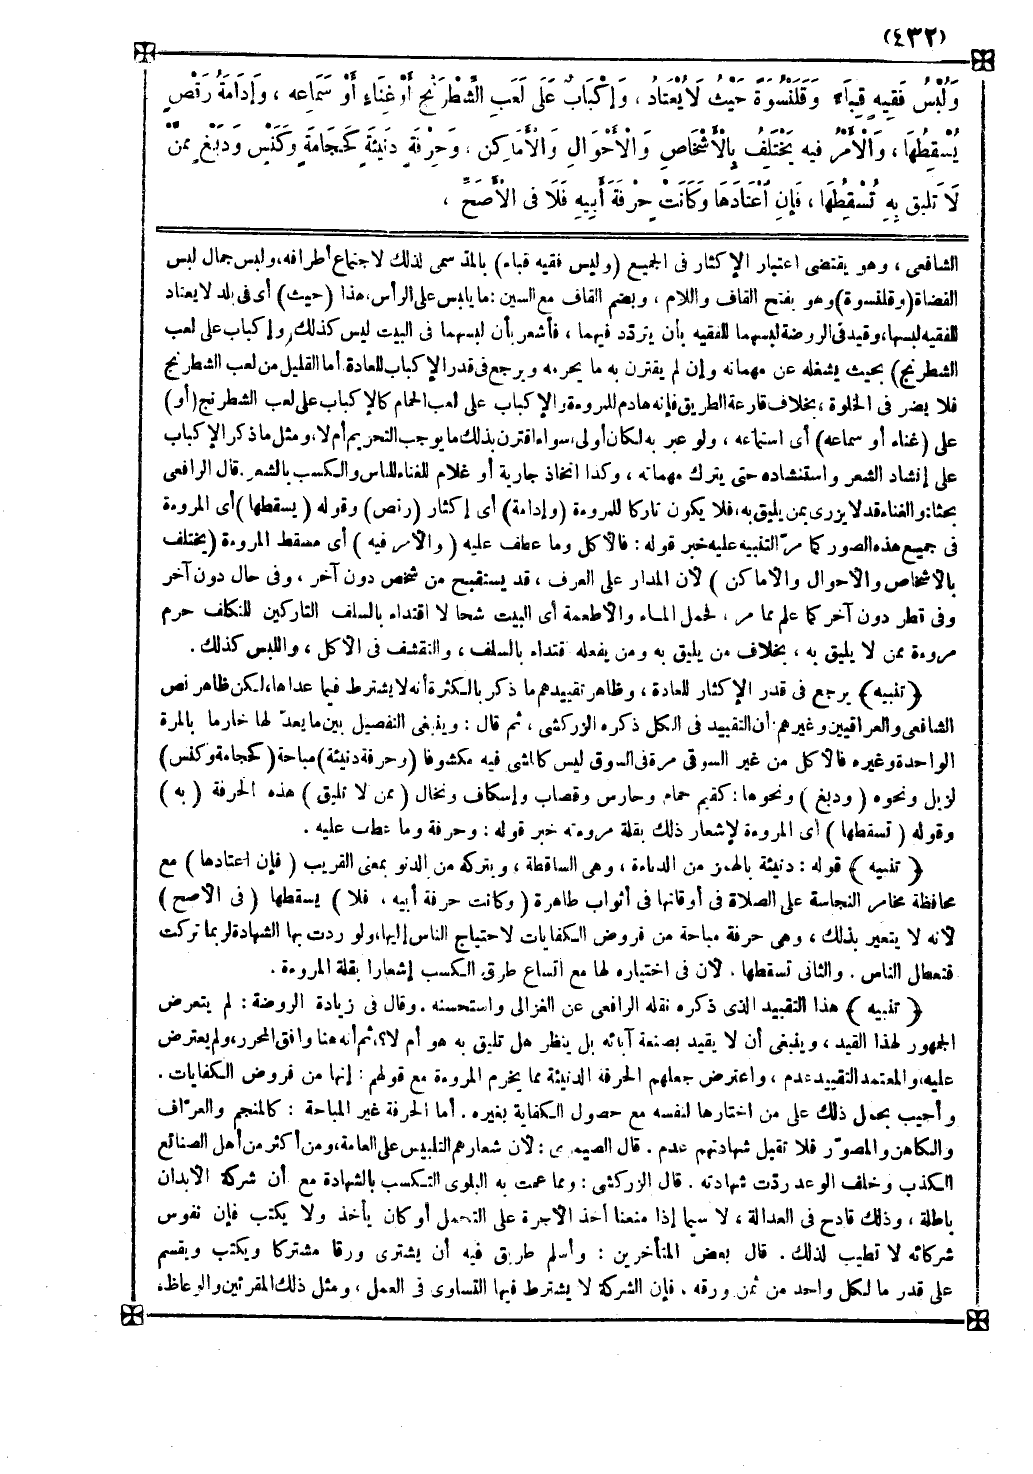 (٤٣٢)
وَلُبْسُ فَقِيهٍ قِبَاءً وَقَلَنْسُوَةً حَيْثُ لَا يُعْتَادُ ، وَإِكْبَابٌ عَلَى لَعِبِ الشِّطْرَنْجِ أَوْ غِنَاءٍ أَوْ سَمَاعِهِ ، وَإِدَامَةُ رَقْصٍ
يُسْقِطُهَا ، وَالْأَمْرُ فِيهِ يَخْتَلِفُ بِالْأَشْخَاصِ وَالْأَحْوَالِ وَالْأَمَاكِنِ . وَحِرْفَةٍ دَنِيئَةٍ كَحِجَامَةٍ وَكَنْسٍ وَدَبْغٍ مِمَّنْ
لَا تَلِيقُ بِهِ تُسْقِطُهَا ، فَإِنِ اعْتَادَهَا وَكَانَتْ حِرْفَةَ أَبِيهِ فَلَا فِى الْأَصَحِّ ،
الشافعى ، وهو يقتضى اعتبار الإكثار فى الجميع (ولبس فقيه قباء) بالمد سمى لذلك لاجتماع أطرافه، وليس جمال لبس
القضاة (وقلنسوة) وهو بفتح القاف واللام ، وبضم القاف مع السين : ما يلبس على الرأس، هذا (حيث) أى فى بلد لا يعتاد
للفقيه لبسها، وقيد فى الروضة لبسهما للفقيه بأن يتردّد فيهما ، فأشعر بأن لبسهما فى البيت ليس كذلك (وإكباب على لعب
الشطرنج) بحيث يشغله عن مهماته وإن لم يقترن به ما يحرمه ويرجع فى قدر الإكباب للعادة. أما القليل من لعب الشطرنج
فلا يضر فى الخلوة ، بخلاف قارعة الطريق فإنه هادم للمروءة والإكباب على لعب الحمام كالإكباب على لعب الشطرنج (أو)
على (غناء أو سماعه) أى استماعه ، ولو عبر به لكان أولى، سواء اقترن بذلك ما يوجب التحريم أم لا، ومثل ما ذكر الإكباب
على إنشاد الشعر واستنشاده حتى يترك مهماته ، وكذا اتخاذ جارية أو غلام للغناء للناس والكسب بالشعر . قال الرافعى
بحثا : والغناء قد لا يزرى بمن يليق به، فلا يكون تاركا للمروءة (وإدامة) أى إكثار (رقص) وقوله ( يسقطها ) أى المروءة
فى جميع هذه الصور كما مرّ التنبيه عليه خبر قوله : فالأكل وما عطف عليه ( والأمر فيه ) أى مسقط المروءة (يختلف
بالأشخاص والأحوال والأماكن ) لأن المدار على العرف ، قد يستقبح من شخص دون آخر ، وفى حال دون آخر
وفى قطر دون آخر كما علم مما مر ، فحمل الماء والأطعمة أى البيت شحا لا اقتداء بالسلف التاركين للتكلف خرم
مروءة ممن لا يليق به ، بخلاف من يليق به ومن يفعله اقتداء بالسلف ، والتقشف فى الأكل ، واللبس كذلك .
﴿ تنبيه ﴾ يرجع فى قدر الإكثار للعادة ، وظاهر تقييدهم ما ذكر بالكثرة أنه لا يشترط فيما عداها، لكن ظاهر نص
الشافعى والعراقيين وغيرهم أن التقييد فى الكل ذكره الزركشى ، ثم قال : وينبغى التفصيل بين ما يعدّ لها خارما بالمرة
الواحدة وغيره فالأكل من غير السوقى مرة فى السوق ليس كالمشى فيه مكشوفا (وحرفة دنيئة) مباحة (كحجامة وكنس)
لزبل ونحوه ( ودبغ ) ونحوها : كقيم حمام وحارس وقصاب وإسكاف ونخال ( ممن لا تليق ) هذه الحرفة ( به )
وقوله ( تسقطها ) أى المروءة لإشعار ذلك بقلة مروءته خبر قوله : وحرفة وما عطف عليه .
﴿ تنبيه ﴾ قوله : دنيئة بالهمز من الدناءة ، وهى الساقطة ، وبتركه من الدنو بمعنى القريب ( فإن اعتادها ) مع
محافظة مخامر النجاسة على الصلاة فى أوقاتها فى أثواب طاهرة ( وكانت حرفة أبيه ، فلا ) يسقطها ( فى الأصح )
لأنه لا يتعير بذلك ، وهى حرفة مباحة من فروض الكفايات لاحتياج الناس إليها، ولو ردت بها الشهادة لربما تركت
فتعطل الناس . والثانى تسقطها . لأن فى اختياره لها مع اتساع طرق الكسب إشعارا بقلة المروءة .
﴿ تنبيه ﴾ هذا التقييد الذى ذكره نقله الرافعى عن الغزالى واستحسنه . وقال فى زيادة الروضة : لم يتعرض
الجمهور لهذا القيد ، وينبغى أن لا يقيد بصنعة آبائه بل ينظر هل تليق به هو أم لا؟، ثم أنه هنا وافق المحرر، ولم يعترض
عليه، والمعتمد التقييد عدم ، واعترض جعلهم الحرفة الدنيئة مما يخرم المروءة مع قولهم : إنها من فروض الكفايات .
وأجيب بحمل ذلك على من اختارها لنفسه مع حصول الكفاية بغيره . أما الحرفة غير المباحة : كالمنجم والعرّاف
والكاهن والمصوّر فلا تقبل شهادتهم عدم . قال الصيمرى : لأن شعارهم التلبيس على العامة، ومن أكثر من أهل الصنائع
الكذب وخلف الوعد ردّت شهادته . قال الزركشى : ومما عمت به البلوى التكسب بالشهادة مع أن شركة الأبدان
باطلة ، وذلك قادح فى العدالة ، لا سيما إذا منعنا أخذ الأجرة على التحمل أو كان يأخذ ولا يكتب فإن نفوس
شركائه لا تطيب لذلك . قال بعض المتأخرين : وأسلم طريق فيه أن يشترى ورقا مشتركا ويكتب ويقسم
على قدر ما لكل واحد من ثمن ورقه . فإن الشركة لا يشترط فيها التساوى فى العمل ، ومثل ذلك المقرئين والوعاظ.